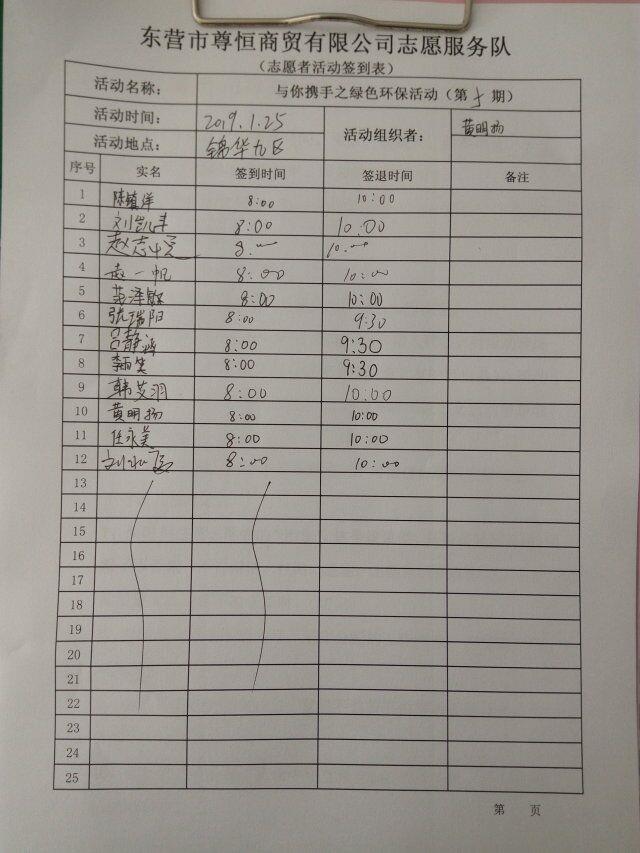 东营市尊恒商贸有限公司志愿服务队
（志愿者活动签到表）
活动名称： 与你携手之绿色环保活动（第 期）
活动时间： 2019.1.25 活动组织者： 黄明扬
活动地点： 锦华九区
序号 实名 签到时间 签退时间 备注
1 陈镇洋 8:00 10:00
2 刘凯丰 8:00 10:00
3 赵志 8:00 10:00
4 赵一帆 8:00 10:00
5 范泽 8:00 10:00
6 张瑞阳 8:00 9:30
7 吕静涵 8:00 9:30
8 李雨笑 8:00 9:30
9 韩艾羽 8:00 10:00
10 黄明扬 8:00 10:00
11 任永美 8:00 10:00
12 刘 8:00 10:00
13
14
15
16
17
18
19
20
21
22
23
24
25
第 页